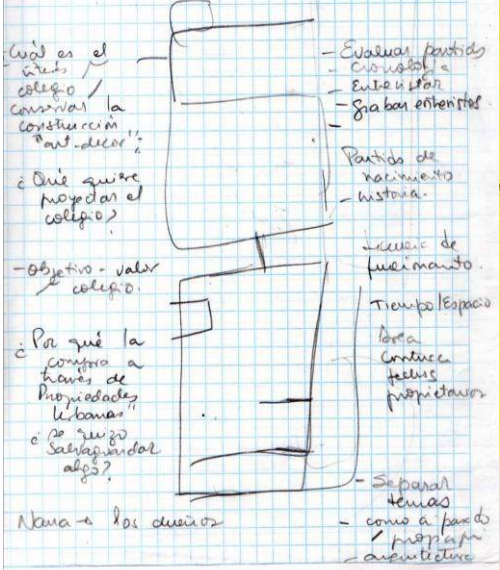 - Cuál es el
interés /
colegio /
conservar la
construcción
"art-decor"?
¿Qué quiere
proyectar el
colegio?
- Objetivo - valor
/ colegio.
¿Por qué la
compra a
través de
Propiedades
Urbanas"
¿se quizo
Salvaguardar
algo?
Nana → los dueños
- Evaluar partido
- Cronología
- Entrevistar
- Grabar entrevistas.
Partida de
nacimiento
- historia.
de
Tiempo/Espacio
Área
propietarios
- Separar
temas
- como a
/
- arquitectura